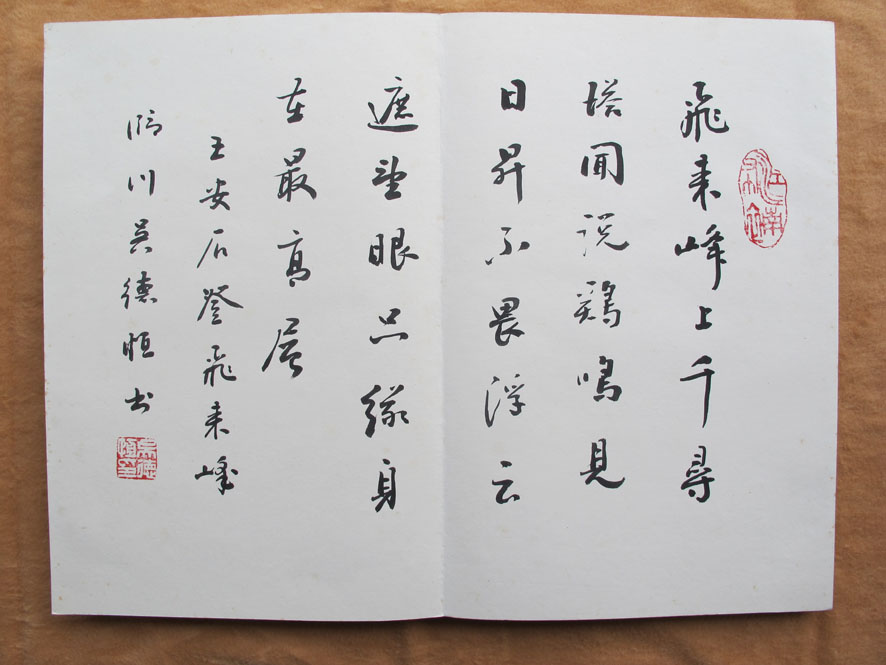 飛来峰上千尋
塔聞说鷄鳴見
日昇不畏浮云
遮望眼只緣身
在最高层
王安石登飛来峰
临川吴德恒书